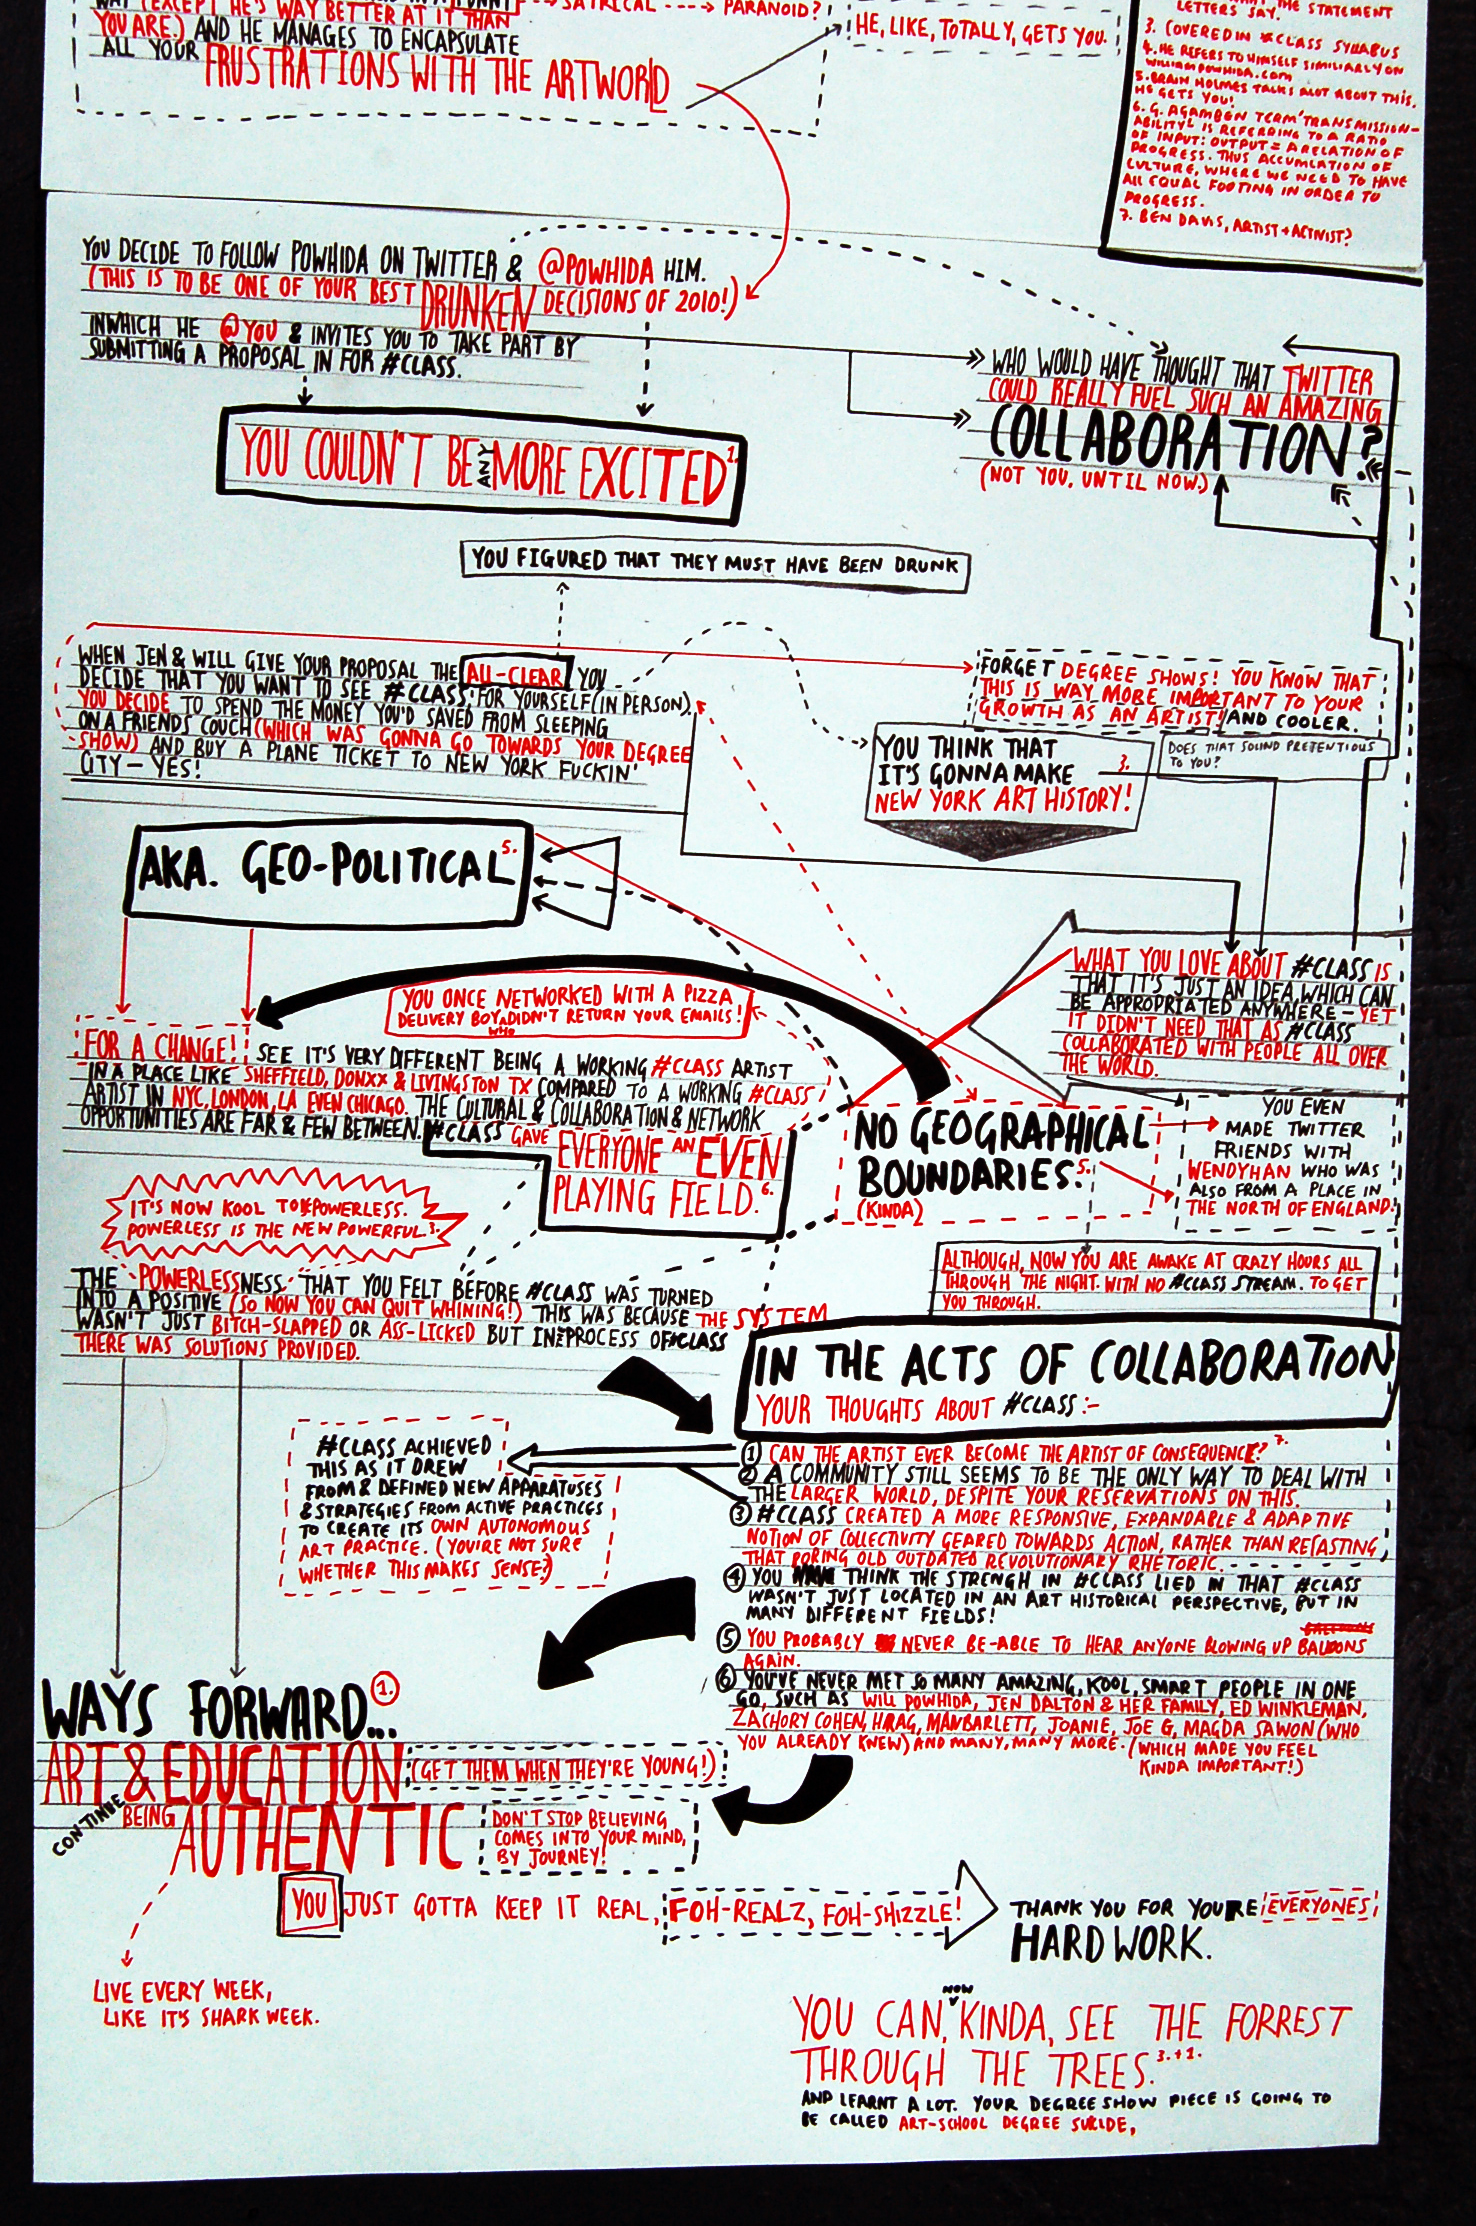 WAY (EXCEPT HE'S WAY BETTER AT IT THAN
YOU ARE.) AND HE MANAGES TO ENCAPSULATE
ALL YOUR FRUSTRATIONS WITH THE ARTWORLD
SATRICAL ----> PARANOID?
HE, LIKE, TOTALLY, GETS YOU.
THE STATEMENT
LETTERS SAY.
3. COVERED IN #CLASS SYLLABUS
4. HE REFERS TO HIMSELF SIMILIARLY ON
WILLIAMPOWHIDA.COM
5. BRAIN HOLMES TALKS ALOT ABOUT THIS,
HE GETS YOU!
6. G. AGAMBEN TERM 'TRANSMISSION-
ABILITY' IS REFERRING TO A RATIO
OF INPUT: OUTPUT = A RELATION OF
PROGRESS. THUS ACCUMLATION OF
CULTURE, WHERE WE NEED TO HAVE
ALL EQUAL FOOTING IN ORDER TO
PROGRESS.
7. BEN DAVIS, ARTIST + ACTIVIST?
YOU DECIDE TO FOLLOW POWHIDA ON TWITTER & @POWHIDA HIM.
(THIS IS TO BE ONE OF YOUR BEST DRUNKEN DECISIONS OF 2010!)
INWHICH HE @YOU & INVITES YOU TO TAKE PART BY
SUBMITTING A PROPOSAL IN FOR #CLASS.
WHO WOULD HAVE THOUGHT THAT TWITTER
COULD REALLY FUEL SUCH AN AMAZING
COLLABORATION?
(NOT YOU, UNTIL NOW.)
YOU COULDN'T BE ANY MORE EXCITED 1.
YOU FIGURED THAT THEY MUST HAVE BEEN DRUNK
WHEN JEN & WILL GIVE YOUR PROPOSAL THE ALL-CLEAR YOU
DECIDE THAT YOU WANT TO SEE #CLASS, FOR YOURSELF (IN PERSON).
YOU DECIDE TO SPEND THE MONEY YOU'D SAVED FROM SLEEPING
ON A FRIENDS COUCH (WHICH WAS GONNA GO TOWARDS YOUR DEGREE
SHOW) AND BUY A PLANE TICKET TO NEW YORK FUCKIN'
CITY - YES!
FORGET DEGREE SHOWS! YOU KNOW THAT
THIS IS WAY MORE IMPORTANT TO YOUR
GROWTH AS AN ARTIST! AND COOLER.
YOU THINK THAT
IT'S GONNA MAKE 3.
NEW YORK ART HISTORY!
DOES THAT SOUND PRETENTIOUS
TO YOU?
AKA. GEO-POLITICAL 5.
WHAT YOU LOVE ABOUT #CLASS IS
THAT IT'S JUST AN IDEA WHICH CAN
BE APPROPRIATED ANYWHERE - YET
IT DIDN'T NEED THAT AS #CLASS
COLLABORATED WITH PEOPLE ALL OVER
THE WORLD.
YOU ONCE NETWORKED WITH A PIZZA
DELIVERY BOY WHO DIDN'T RETURN YOUR EMAILS!
FOR A CHANGE! SEE IT'S VERY DIFFERENT BEING A WORKING #CLASS ARTIST
IN A PLACE LIKE SHEFFIELD, DONXX & LIVINGSTON TX COMPARED TO A WORKING #CLASS
ARTIST IN NYC, LONDON, LA EVEN CHICAGO. THE CULTURAL & COLLABORATION & NETWORK
OPPORTUNITIES ARE FAR & FEW BETWEEN. #CLASS GAVE EVERYONE AN EVEN
PLAYING FIELD. 6.
NO GEOGRAPHICAL
BOUNDARIES. 5.
(KINDA)
YOU EVEN
MADE TWITTER
FRIENDS WITH
WENDYHAN WHO WAS
ALSO FROM A PLACE IN
THE NORTH OF ENGLAND!
IT'S NOW KOOL TO BE POWERLESS.
POWERLESS IS THE NEW POWERFUL. 3.
ALTHOUGH, NOW YOU ARE AWAKE AT CRAZY HOURS ALL
THROUGH THE NIGHT. WITH NO #CLASS STREAM. TO GET
YOU THROUGH.
THE 'POWERLESSNESS' THAT YOU FELT BEFORE #CLASS WAS TURNED
INTO A POSITIVE (SO NOW YOU CAN QUIT WHINING!) THIS WAS BECAUSE THE SYSTEM
WASN'T JUST BITCH-SLAPPED OR ASS-LICKED BUT IN THE PROCESS OF #CLASS
THERE WAS SOLUTIONS PROVIDED.
IN THE ACTS OF COLLABORATION
YOUR THOUGHTS ABOUT #CLASS :-
① CAN THE ARTIST EVER BECOME THE ARTIST OF CONSEQUENCE? 7.
② A COMMUNITY STILL SEEMS TO BE THE ONLY WAY TO DEAL WITH
THE LARGER WORLD, DESPITE YOUR RESERVATIONS ON THIS.
③ #CLASS CREATED A MORE RESPONSIVE, EXPANDABLE & ADAPTIVE
NOTION OF COLLECTIVITY GEARED TOWARDS ACTION, RATHER THAN RECASTING
THAT BORING OLD OUTDATED REVOLUTIONARY RHETORIC.
④ YOU THINK THE STRENGH IN #CLASS LIED IN THAT #CLASS
WASN'T JUST LOCATED IN AN ART HISTORICAL PERSPECTIVE, BUT IN
MANY DIFFERENT FIELDS!
⑤ YOU PROBABLY NEVER BE-ABLE TO HEAR ANYONE BLOWING UP BALLOONS
AGAIN.
⑥ YOU'VE NEVER MET SO MANY AMAZING, KOOL, SMART PEOPLE IN ONE
GO, SUCH AS WILL POWHIDA, JEN DALTON & HER FAMILY, ED WINKLEMAN,
ZACHORY COHEN, HRAG, MANBARLETT, JOANIE, JOE G, MAGDA SAWON (WHO
YOU ALREADY KNEW) AND MANY, MANY MORE. (WHICH MADE YOU FEEL
KINDA IMPORTANT!)
#CLASS ACHIEVED
THIS AS IT DREW
FROM & DEFINED NEW APPARATUSES
& STRATEGIES FROM ACTIVE PRACTICES
TO CREATE ITS OWN AUTONOMOUS
ART PRACTICE. (YOU'RE NOT SURE
WHETHER THIS MAKES SENSE?)
WAYS FORWARD... 1.
ART & EDUCATION (GET THEM WHEN THEY'RE YOUNG!)
CONTINUE BEING AUTHENTIC
DON'T STOP BELIEVING
COMES INTO YOUR MIND,
BY JOURNEY!
YOU JUST GOTTA KEEP IT REAL, FOH-REALZ, FOH-SHIZZLE!
THANK YOU FOR YOURE EVERYONES
HARD WORK.
LIVE EVERY WEEK,
LIKE IT'S SHARK WEEK.
YOU CAN, NOW KINDA, SEE THE FORREST
THROUGH THE TREES. 3.+1.
AND LEARNT A LOT. YOUR DEGREE SHOW PIECE IS GOING TO
BE CALLED ART-SCHOOL DEGREE SUICIDE,